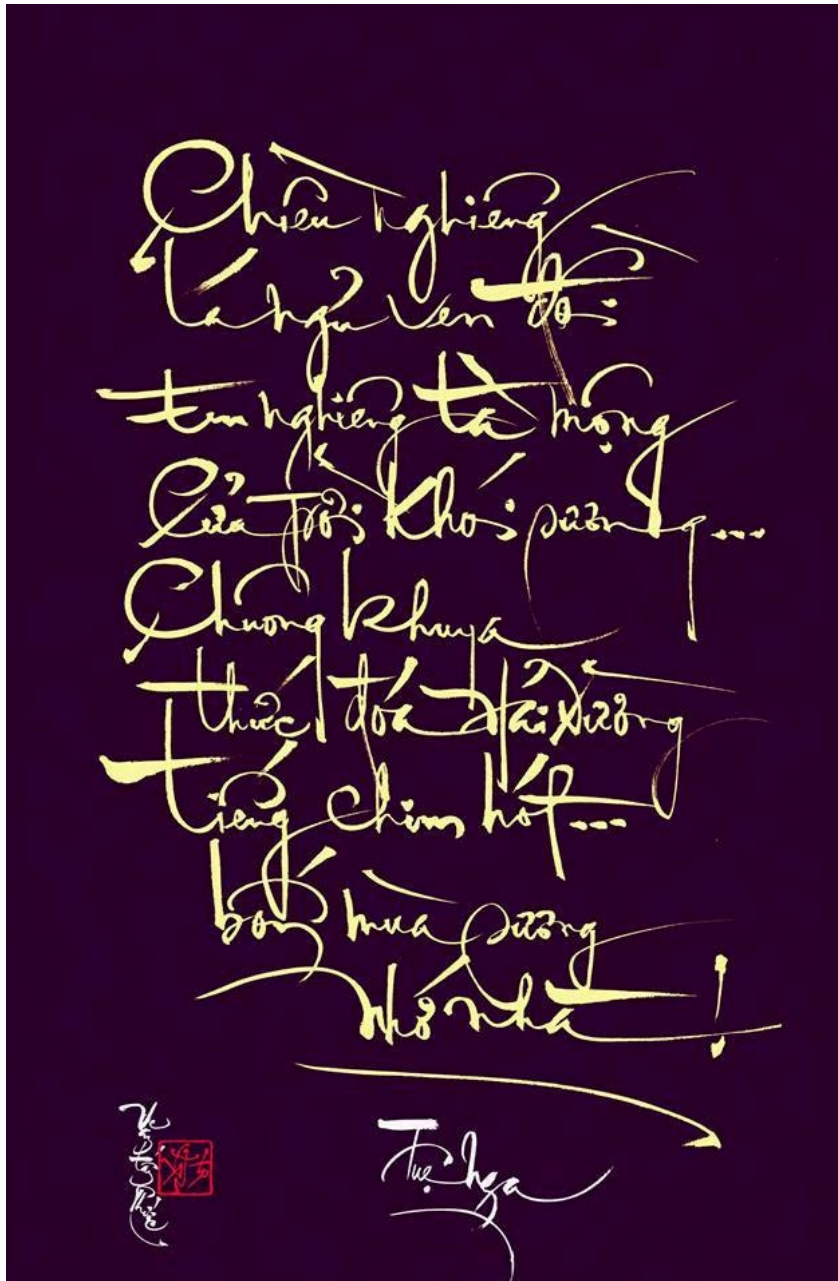 Chiều nghiêng
lá ngủ ven đồi
tim nghiêng tà mộng
cửa trời khói sương...
Chuông khuya
thức đóa Hải Đường
tiếng chim hót...
bóng mùa sương
Nhớ nhà!
Tuệ Nga